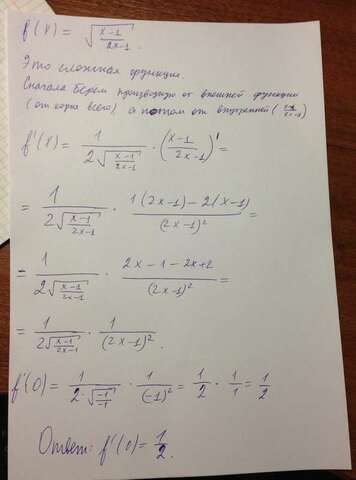 f(x) = √((x-1)/(2x-1)).
Это сложная функция.
Сначала берем производную от внешней функции
(от корня всего), а потом от внутренней ((x-1)/(2x-1))
f'(x) = 1/(2√((x-1)/(2x-1))) · ((x-1)/(2x-1))' =
= 1/(2√((x-1)/(2x-1))) · (1(2x-1)-2(x-1))/(2x-1)² =
= 1/(2√((x-1)/(2x-1))) · (2x-1-2x+2)/(2x-1)² =
= 1/(2√((x-1)/(2x-1))) · 1/(2x-1)².
f'(0) = 1/(2·√(-1/-1)) · 1/(-1)² = 1/2 · 1/1 = 1/2
Ответ: f'(0) = 1/2.